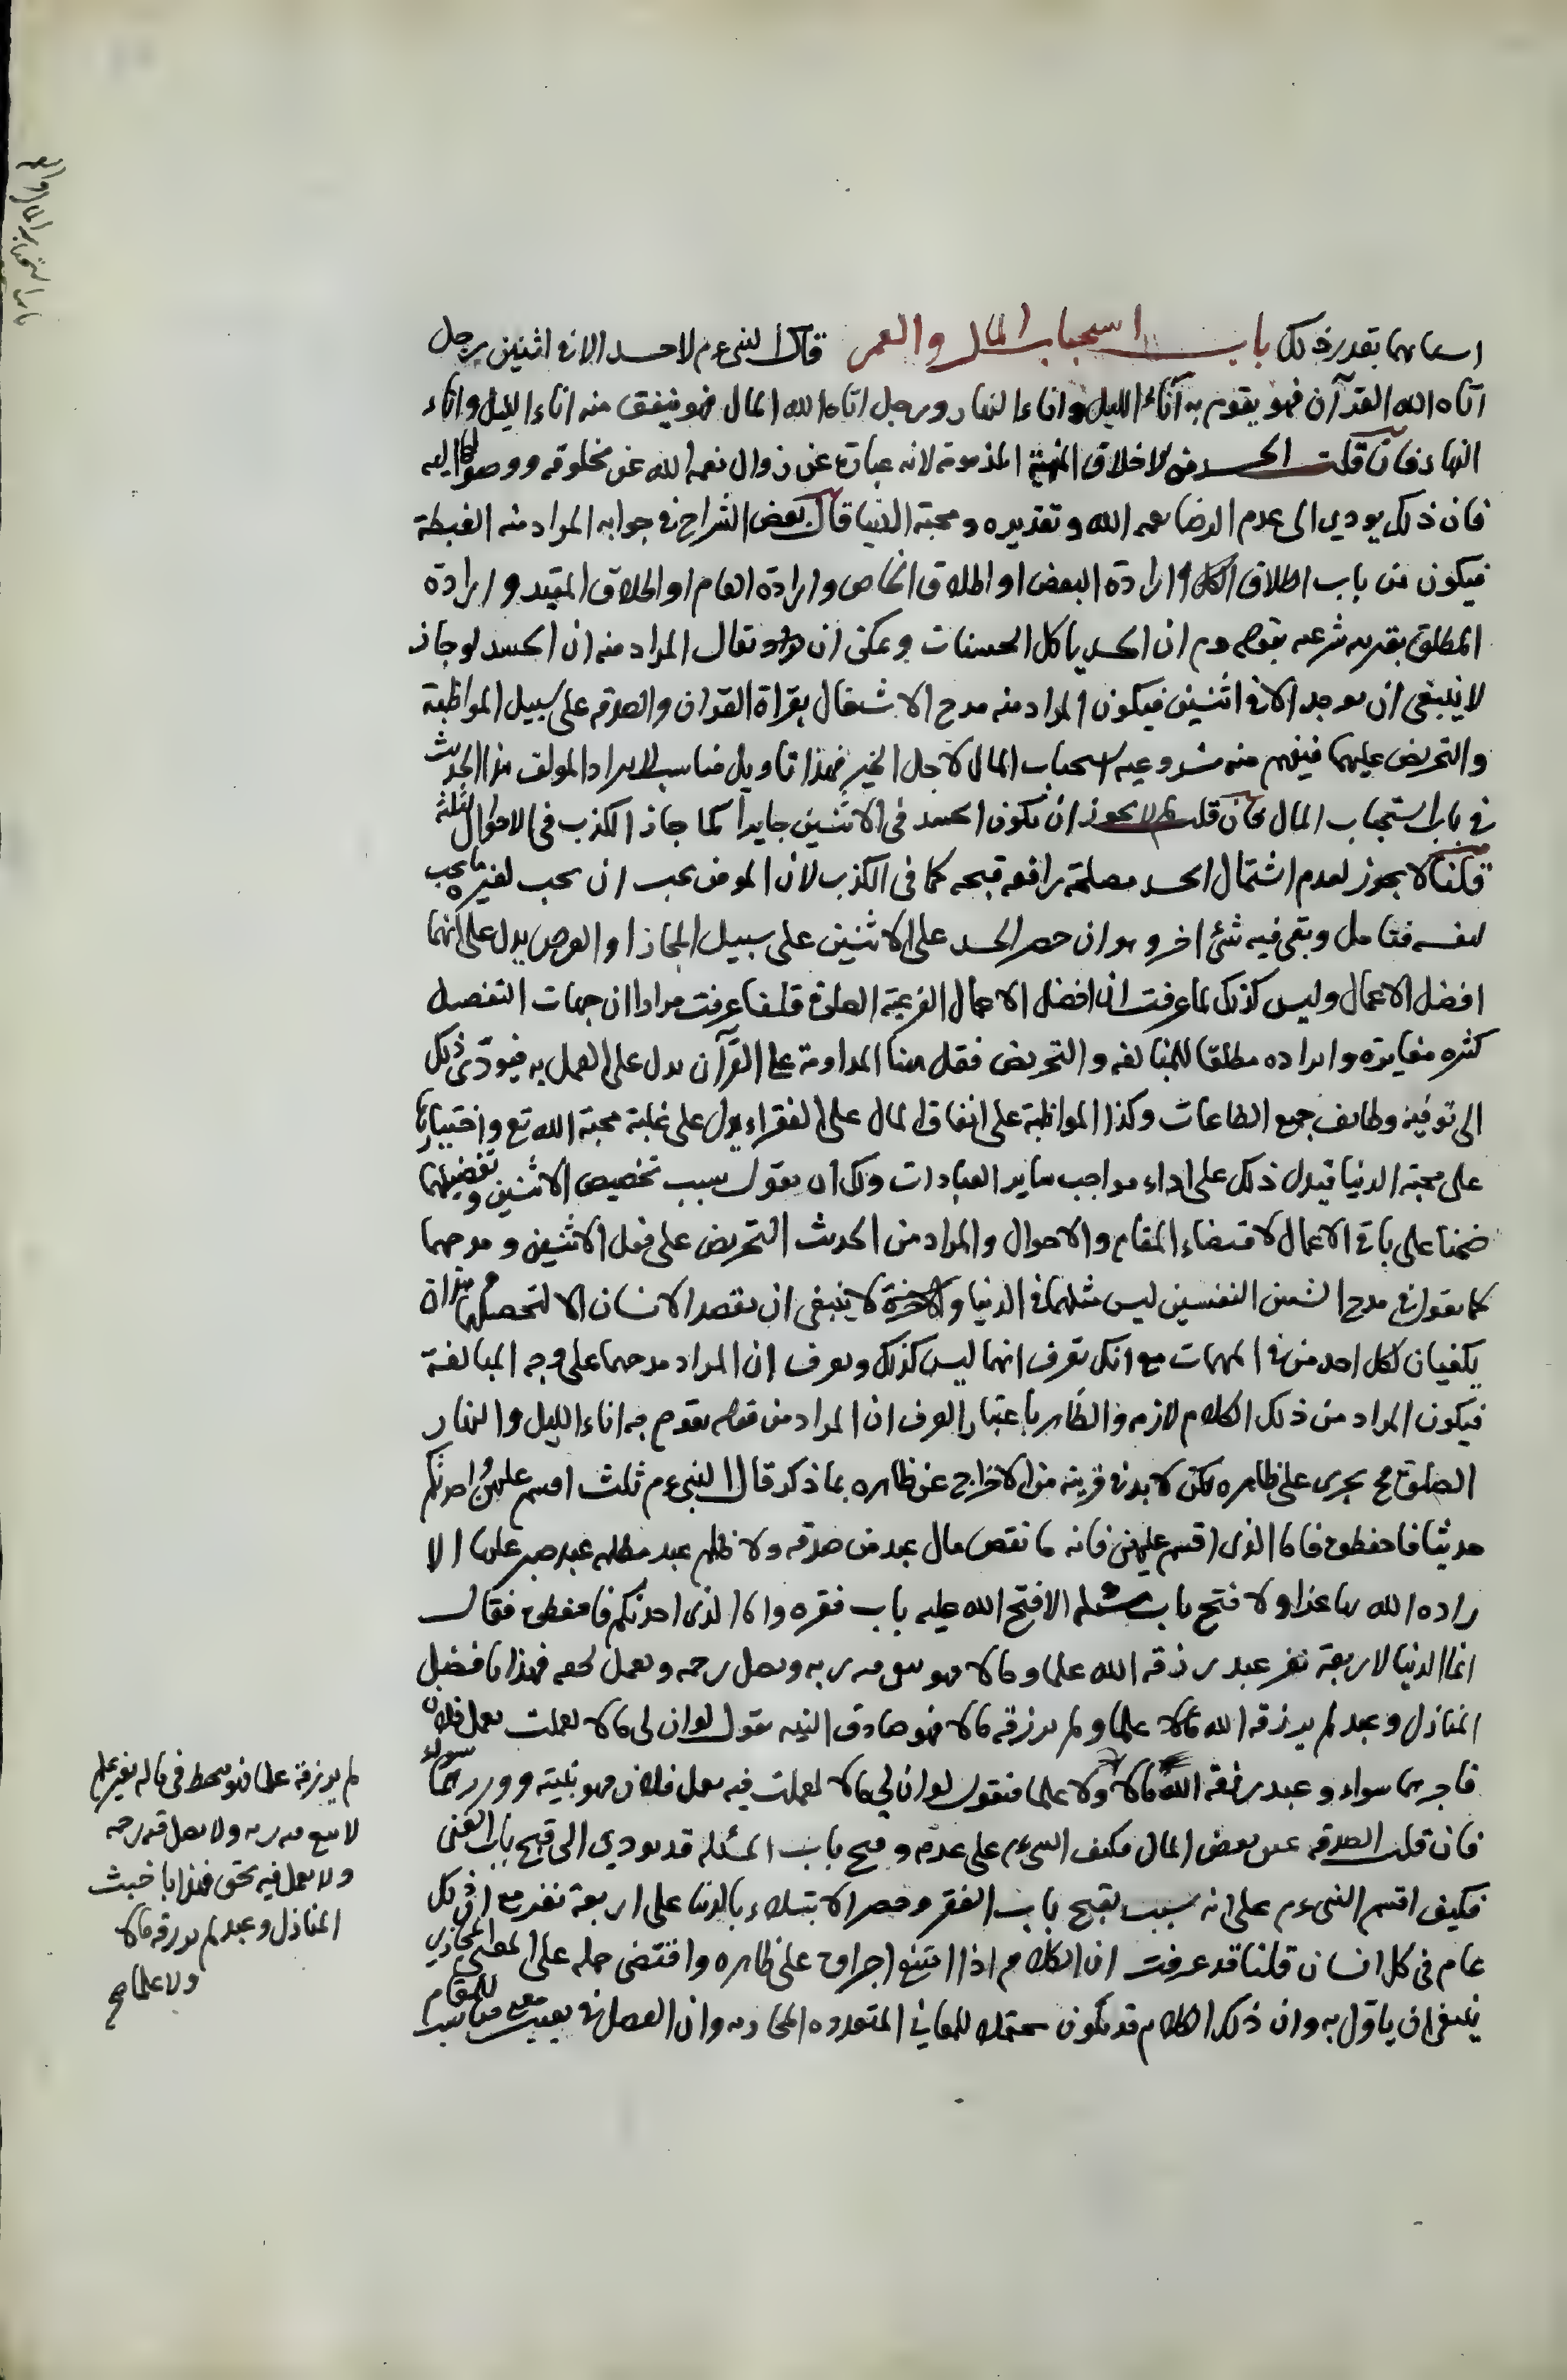 اسبابهما بقدر ذلك باب استحباب المال والعمر قال النبي ءم لا حسد الا في اثنين رجل
آتاه الله القرآن فهو يقوم به آناء الليل واناء النهار ورجل اتاه الله المال فهو ينفق منه اناء الليل واناء
النهار فان قلت الحسد من الاخلاق المذمومة لانه عبارة عن زوال نعمة الله عن مخلوقه ووصولها اليه
فان ذلك يودي الى عدم الرضا بنعمة الله وتقديره ومحبة الدنيا قال بعض الشراح في جوابه المراد منه الغبطة
فيكون من باب اطلاق الكل وارادة البعض او اطلاق الخاص وارادة العام او اطلاق المقيد وارادة
المطلق بقرينة شرعية بقوله ءم ان الحسد ياكل الحسنات ويمكن ان يقال المراد منه ان الحسد لو جاز
لا ينبغي ان يوجد الا في اثنين فيكون المراد منه مدح الاشتغال بقراة القران والصدقه على سبيل المواظبة
والتحريض عليهما فيفهم منه مشروعية استحباب المال لاجل الخير فهذا تاويل مناسب لايراد المولف هذا الحديث
في باب استحباب المال فان قلت لم لا يجوز ان يكون الحسد في الاثنين جايزا كما جاز الكذب في الاحوال الثلثة
قلنا لا يجوز لعدم اشتمال الحسد مصلحة رافعة قبحه كما في الكذب لان المومن يجب ان يحب لغيره ما يحب
لنفسه فتامل وبقي فيه شئ اخر وهو ان حصر الحسد على الاثنين على سبيل المجاز او الفرض يدل على انهما
افضل الاعمال وليس كذلك لما عرفت ان افضل الاعمال الفرعية الصلوة قلنا عرفت مرارا ان جهات التفضيل
كثيرة متغايرة وايراده مطلقا للمبالغه والتحريض فقل هنا المداومة على القرآن يدل على العمل به فيودّي ذلك
الى توفية وظايف جميع الطاعات وكذا المواظبة على انفاق المال على الفقراء يدل على غلبة محبة الله تع واختيارها
على محبة الدنيا فيدل ذلك على اداء مواجب ساير العبادات ولك ان تقول سبب تخصيص الاثنين وتفضيلهما
ضمنا على باقي الاعمال لاقتضاء المقام والاحوال والمراد من الحديث التحريض على فعل الاثنين ومدحهما
كما تقول في مدح الشيئين النفيسين ليس مثلهما في الدنيا والاخرة لا ينبغي ان يقصد الانسان الا لتحصيلهما
يكفيان لكل احد من في المهمات مع انك تعرف انهما ليس كذلك وتعرف ان المراد مدحهما على وجه المبالغة
فيكون المراد من ذلك الكلام لازمه والظاهر باعتبار العرف ان المراد من قوله يقوم به اناء الليل والنهار
الصلوة يجري على ظاهره لكن لا بد في قرينة من الاخراج عن ظاهره بما ذكر قال النبي ءم ثلث اقسم عليهن واحدثكم
حديثا فاحفظوه فاما الذي اقسم عليهن فانه ما نقص مال عبد من صدقه ولا ظلم عبد مظلمه عبد صبر عليها الا
زاده الله بها عزا ولا فتح باب مسئلة الا فتح الله عليه باب فقره واما الذي احدثكم فاحفظوه فقال
انما الدنيا لاربعة نفر عبد رزقه الله علما ومالا فهو يتق فيه ربه ويصل رحمه ويعمل لحقه فهذا بافضل
المنازل وعبد لم يرزقه الله مالا علما ولم يرزقه مالا فهو صادق النيه يقول لو ان لي مالا لعملت بعمل فلان
فاجرهما سواء وعبد رزقه الله مالا ولا علما فيقول لو ان لي مالا لعملت فيه بعمل فلان فهو بنيته ووزرهما سواء
فان قلت الصدقه عين بعض المال فكيف النبي ءم على عدمه وفتح باب المسئلة قد يودي الى فتح باب الغنى
فكيف اقسم النبي ءم على انه سبب لفتح باب الفقر وحصر الابتلاء بالدنيا على اربعة نفر مع ان ذلك
عام في كل انسان قلنا قد عرفت ان الكلام اذا امتنع اجراؤه على ظاهره واقتضى حمله على المعنى المجازي
ينبغي ان ياوّل به وان ذلك الكلام قد يكون محتملا للمعاني المتعدده المجازيه وان الفصل في تعيين معنى مناسب للمقام
لم يرزقه علما فهو يتخبط في ماله بغير علم
لا يتقي فيه ربه ولا يصل فيه رحمه
ولا يعمل فيه بحق فهذا باخبث
المنازل وعبد لم يرزقه مالا
ولا علما صح